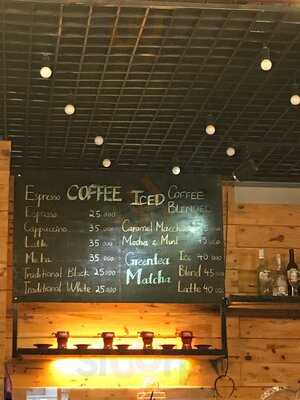 Espresso COFFEE ICED COFFEE BLENDED
Espresso 25.000
Cappuccino 35.000
Latte 35.000
Mocha 35.000
Traditional Black 25.000
Traditional White 25.000
Caramel Macchiato 45.000
Mocha & Mint 45.000
Greentea Matcha
Ice 40.000
Blend 45.000
Latte 40.000